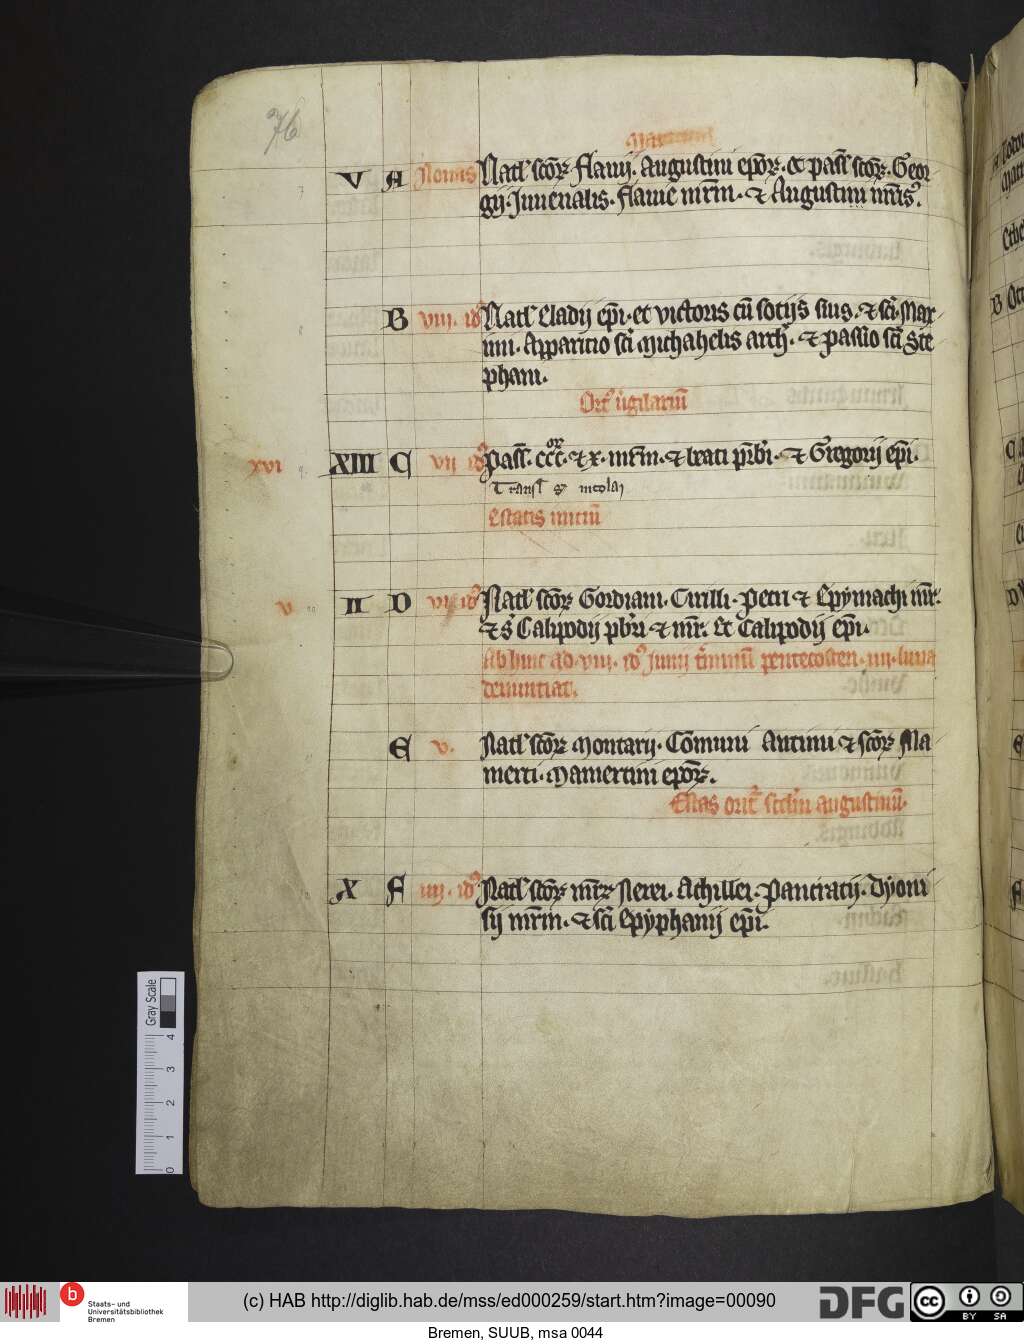 76
V A Nonis Natl' scōꝝ Flauij. Augustini ep̄oꝝ. & pass̄ scōꝝ. Geor
gij. Juuenalis. Flauie mr̄m. & Augustini mr̄is.
B viii. id' Natl' Eladij ep̄i. et victoris cū sotijs suis. & sc̄i. Max
imi. Apparicio sc̄i Michahelis arch'. & passio sc̄i Ste
phani.
Ort' uigiliarū
xvi XIII C vii id' Pass̄. cccc. & x. mr̄m. & beati pr̄bi. & Gregorij ep̄i.
Transl' nicolaj
Estatis iniciū
v II D vi id' Natl' scōꝝ Gordiani. Cirilli. Petri & Epymachi mr̄.
& s' Calipodij pb̄ri & mr̄. Et Calipodij ep̄i.
Ab hinc ad. viii. id' Junij pentecosten. iiii. luna
denunciat.
E v. Natl' scōꝝ Montarij. Cōmini Antimi & scōꝝ Ma
merti. Mamertini ep̄oꝝ.
Estas orit' augustinū.
X F iiij. id' Natl' scōꝝ mr̄ꝝ Nerei. Achillei. Pancratij. Dyoni
sij mr̄m. & sc̄i Epyphanij ep̄i.
Gray Scale
4
3
2
1
0
b
Staats- und
Universitätsbibliothek
Bremen
(c) HAB http://diglib.hab.de/mss/ed000259/start.htm?image=00090
DFG
cc BY SA
Bremen, SUUB, msa 0044